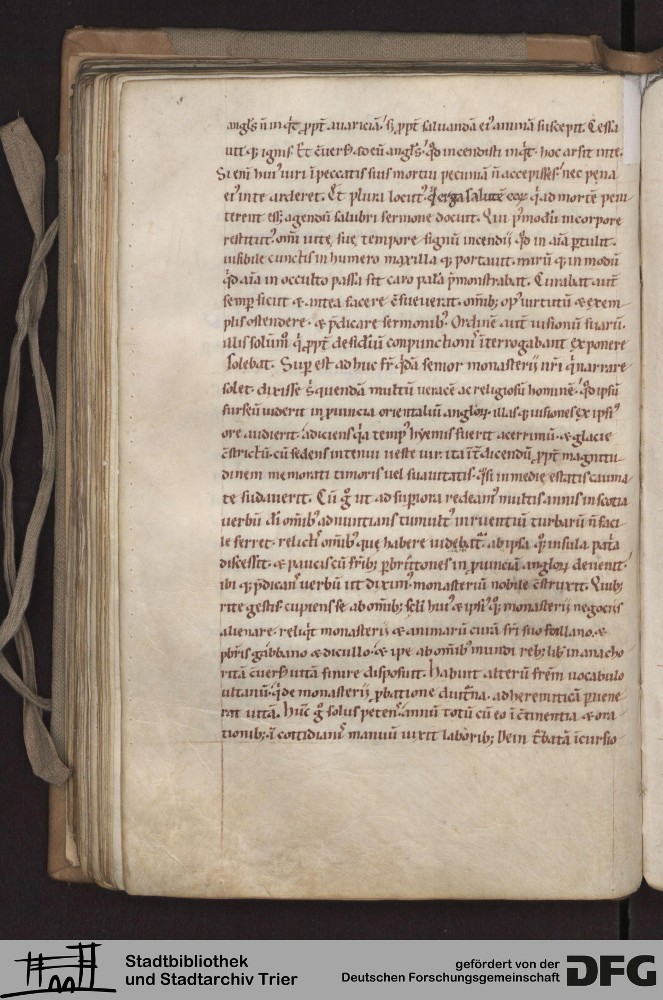 angl's n̄ inqͥt ꝓpt̄ auariciā. s; ꝓpt̄ saluandā eiꝰ animā suscepit. Cessa
uit q; ignis. Et c̄uersꝰ ad eū angl's. qd̄ incendisti inqͥt. hoc arsit in te.
Si enī huiꝰ uiri ī peccatis suis mortui pecuniā n̄ accepisses. nec pena
eiꝰ in te arderet. Et plura locutꝰ qͥd erga salutē eoꝝ qͥ ad mortē peni
terent eēt agendū salubri sermone docuit. Qui pꝰmodū in corpore
restitutꝰ. om̄i uite sue tempore signū incendij qd̄ in aīa ꝑtulit.
uisibile cunctis in humero maxilla q; portauit. mirū q; in modū
qd̄ aīa in occulto passa sit caro palā p̄monstrabat. Curabat aut̄
semp̄ sicut & antea facere c̄sueuerat. omīb; opꝰ uirtutū & exem
plis ostendere. & p̄dicare sermonib;. Ordinē aut̄ uisionū suarū.
illis solūmͦ qͥ ꝓpt̄ desidiū conpunctionis īterrogabant exponere
solebat. Sup est adhuc fr̄ qͥdā senior monasterij nr̄i qͥ narrare
solet. dixisse sͥ quendā multū ueracē ac religiosū hominē. qd̄ ipsū
furseū uiderit in ꝓuincia orientaliū angloꝝ. illas q; uisiones ex ipsiꝰ
ore audierit. adiciens qͥa tempꝰ hyemis fuerit acerrimū. & glacie
c̄strictū. cū sedens in tenui ueste uir. ita īt̄ dicendū ꝓpt̄ magnitu
dinem memorati timoris uel suauitatis. qͣsi in medie estatis cauma
te sudauerit. Cū gͦ ut ad supiora redeamꝰ multis annis in scotia
uerbū dī omīb; adnuntians tumultꝰ inruentiū turbarū n̄ faci
le ferret. relictis omīb; que habere uidebat̄. ab ipsa qͦ; insula pat̄a
discessit. & paucis cū fr̄ib; ꝑ brittones in ꝓuinciā angloꝝ deuenit.
ibi q; p̄dicans uerbū ut diximꝰ. monasteriū nobile c̄struxit. Quib;
rite gestis. cupiens se ab omīb; sc̄li huiꝰ & ipsiꝰ qͦ; monasterij negocijs
alienare. reliqͥt monasterij & animarū curā fr̄i suo foillano. &
pbr̄is gabbano & dicullo. & ipe ab omīb; mundi reb; lib in anacho
ritā c̄uersꝰ uitā finire disposuit. Habuit alterū frēm uocabulo
ultanū. qͥ de monasterij ꝓbatione diut̄na. ad heremiticā ꝑuene
rat uitā. Hūc gͦ solus petens. annū totū cū eo ī c̄tinentia & ora
tionib;. ī cottidianis manuū uixit laborib; Dein t̄batā īcursio
Stadtbibliothek
und Stadtarchiv Trier
gefördert von der
Deutschen Forschungsgemeinschaft
DFG